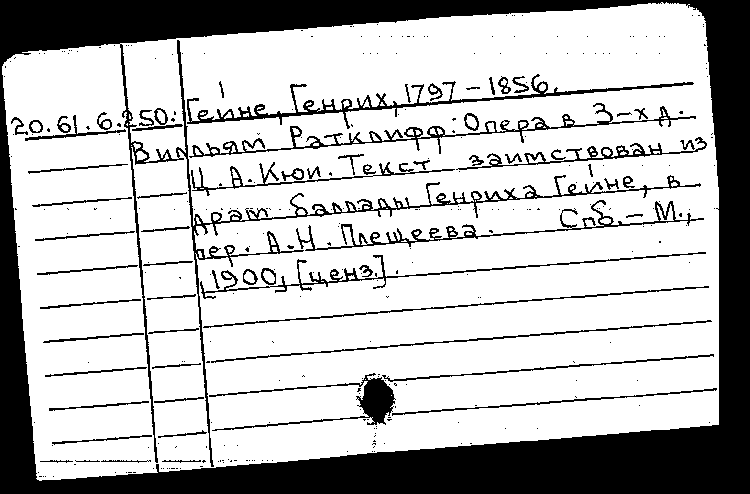 20.61.6.250. Гейне, Генрих, 1797-1856.
Вилльям Ратклифф: Опера в 3-х д.
Ц.А.Кюи. Текст заимствован из
драм баллады Генриха Гейне, в
пер. А.Н. Плещеева. Спб.-М.,
1900, [ценз.].